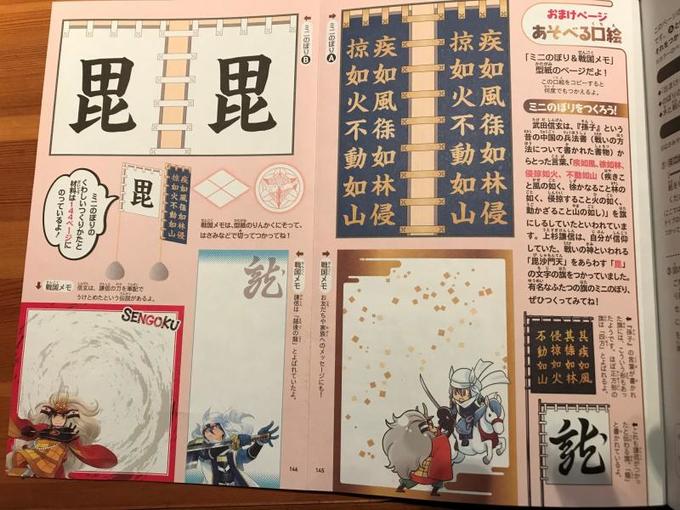 おまけページ
あそべる口絵
「ミニのぼり&戦国メモ」
型紙のページだよ!
この口絵をコピーすると
何度でもつかえるよ。
ミニのぼりをつくろう!
武田信玄は、『孫子』という
昔の中国の兵法書(戦いの方
法について書かれた書物)か
らとった言葉、「疾如風、徐如林、
侵掠如火、不動如山(疾きこ
と風の如く、徐かなること林の
如く、侵掠すること火の如く、
動かざること山の如し)」を旗
にしるしていたといわれていま
す。上杉謙信は、自分が信仰
していた、戦いの神といわれる
「毘沙門天」をあらわす「毘」
の文字の旗をつかっていました。
有名なふたつの旗のミニのぼり、
ぜひつくってみてね!
ミニのぼりA
疾如風徐如林侵
掠如火不動如山
疾如風徐如林侵
掠如火不動如山
ミニのぼりB
毘
毘
ミニのぼりの
くわしいつくりかたと
材料は144ページに
のっているよ!
毘
疾如風徐如林侵
掠如火不動如山
戦国メモは、型紙のりんかくにそって、
はさみなどで切ってつかってね!
戦国メモ
信玄は、謙信の刀を軍配で
うけとめたという伝説があるよ。
SENGOKU
戦国メモ
謙信は「越後の龍」とよばれていたよ。
龍
戦国メモ
お友だちや家族へのメッセージにも!
其疾如風
其徐如林
侵掠如火
不動如山
『孫子』の言葉が書かれ
龍
と書かれているよ。
146
145